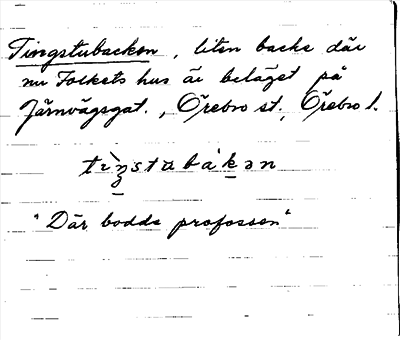 Tingstubacken, liten backe där
nu Folkets hus är beläget på
Järnvägsgat., Örebro st., Örebro l.
"Där bodde profossen"